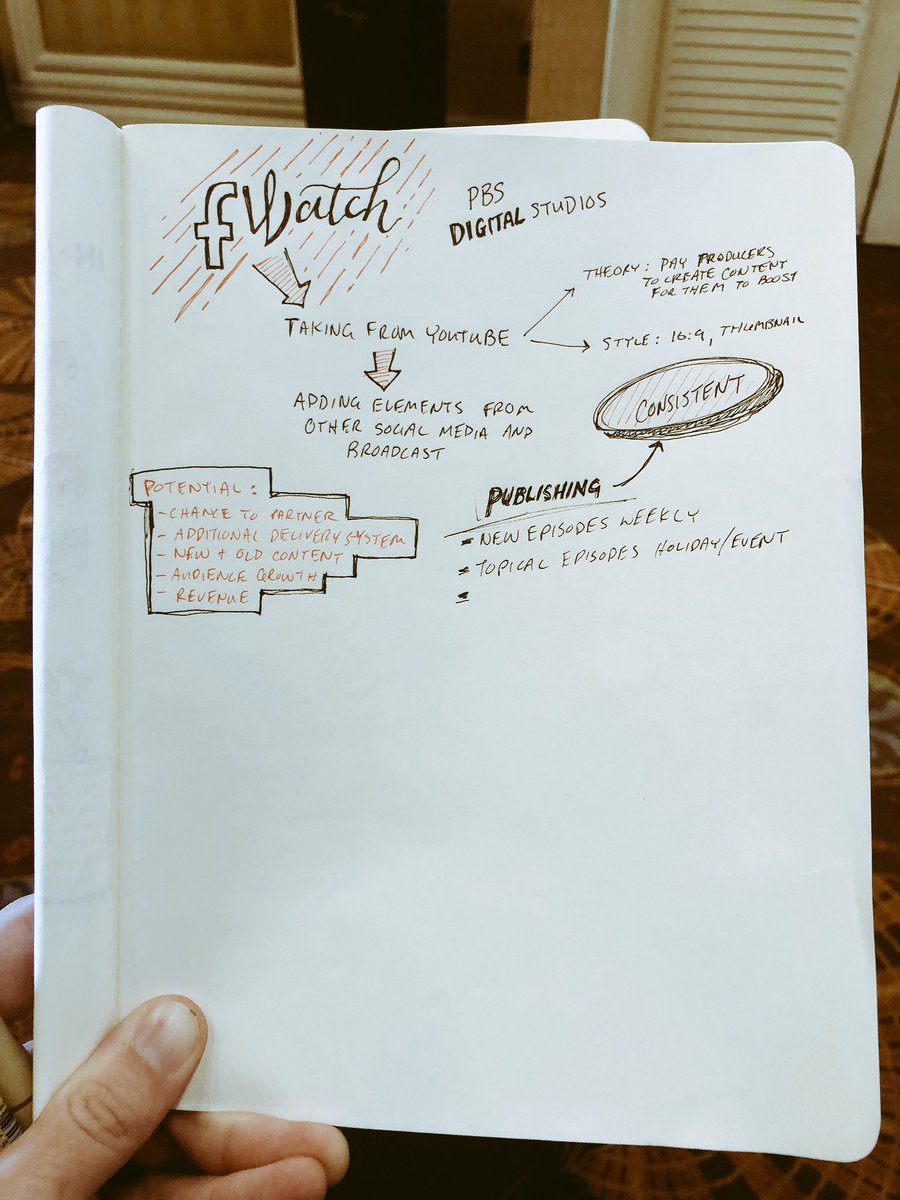 f Watch
PBS
DIGITAL STUDIOS
THEORY: PAY PRODUCERS
TO CREATE CONTENT
FOR THEM TO BOOST
TAKING FROM YOUTUBE
STYLE: 16:9, THUMBNAIL
ADDING ELEMENTS FROM
OTHER SOCIAL MEDIA AND
BROADCAST
CONSISTENT
POTENTIAL:
- CHANCE TO PARTNER
- ADDITIONAL DELIVERY SYSTEM
- NEW + OLD CONTENT
- AUDIENCE GROWTH
- REVENUE
PUBLISHING
- NEW EPISODES WEEKLY
- TOPICAL EPISODES HOLIDAY/EVENT
-